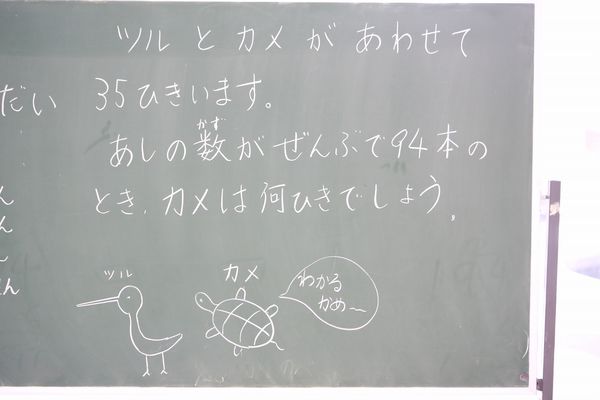 ツルとカメがあわせて
だい
35ひきいます。
かず
あしの数がぜんぶで94本の
とき、カメは何ひきでしょう。
ん
ん
ん
ツル
カメ
わかる
かめ〜